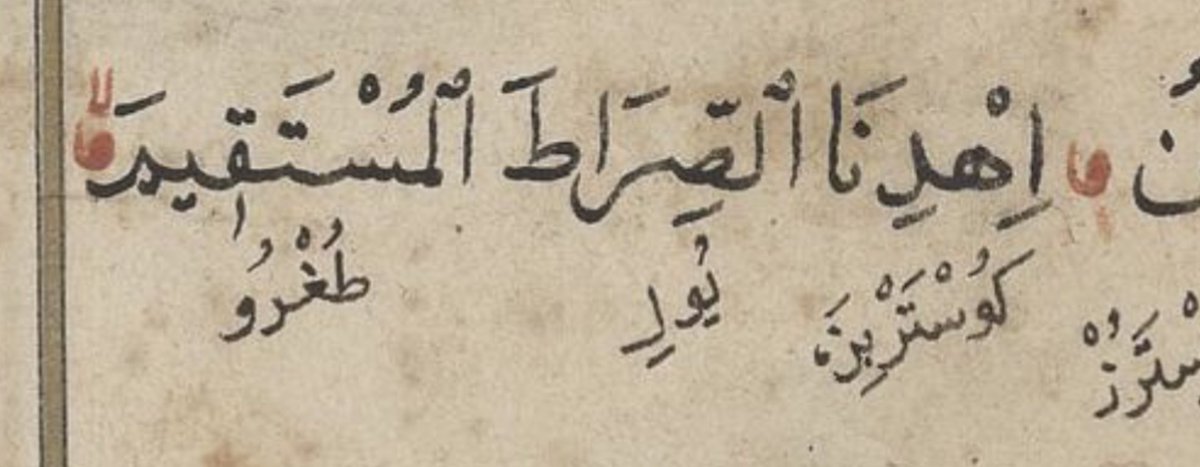 اِهْدِنَا ٱلصِّرَاطَ ٱلْمُسْتَقِيمَ
كُوسْتَرْبِزَه يُولِ طُغْرُو